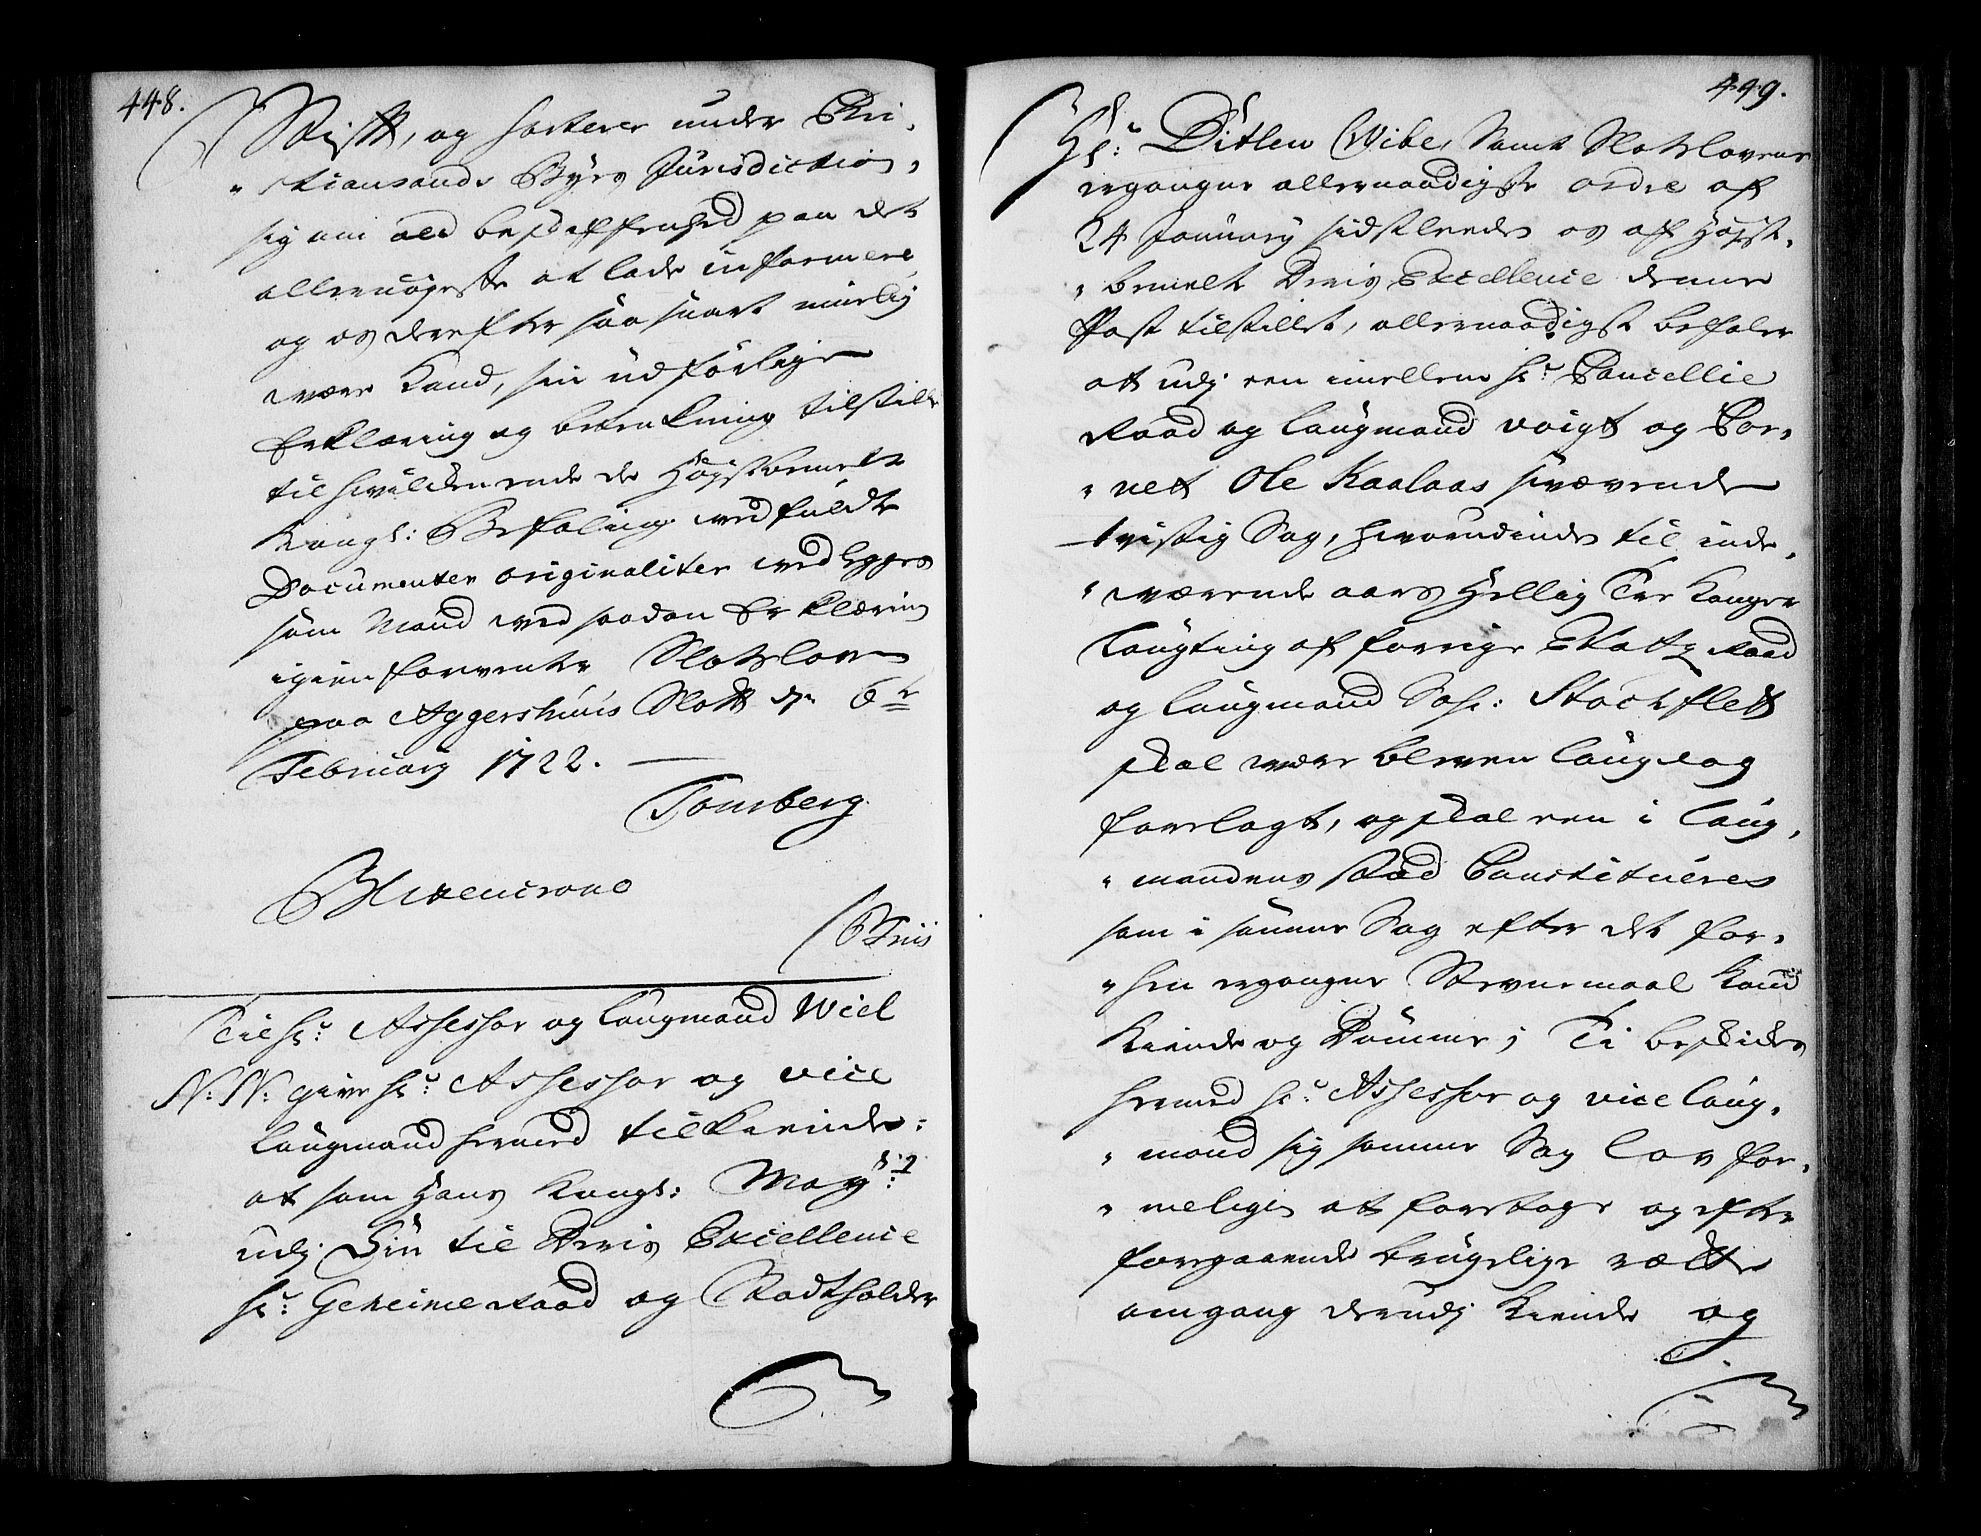 448.
Stift, og sorterer under Chri„
„stiansands Byes Jurisdiction,
sig om all beskaffenhed paa det
allernøyeste at lade informere
og os derefter saa snart muelig
være kand, sin udførlige
Erklæring og betenkning tilstille
til hvilcken ende de Høystbemelte
Kongl: Befaling vedfuldte
Documenter originaliter
som Mand med saadan Erklæring
igien forventer Slotsloven
paa Aggershuus Slott den 6te
Februarj 1722.
Tonsberg
Blixencrone
Bruus
Til Hr: Assessor og Laugmand Wiel
N: N: give Hr: Assessor og vice
Laugmand hermed tilkiende:
at som Hans Kongl: Mayts:
udj Sin til Deris Excellence
Hr: Geheime Raad og Stadtholder
449.
Hr: Ditlev Wibe, Samt Slotsloven
ergangne allernaadigste ordre af
24 January sidstleeden os af Høyst„
„bemelte Deris Excellence denne
Post tilstillet, allernaadigst befaler
at udj een imellem Hr: Cancellie
Raad og Laugmand Voigt og Cor„
„net Ole Kaalaas sværende
tvistig Sag, hvorudinden til inde„
„værende aars Hellig Tre Konger
Laugting af forrige Etatz Raad
og Laugmand Sal: Stockflett
skal være bleven Laugdag
forelagt, og skal een i Laug„
„mandens stæd Constitueres
som i samme Sag efter det for„
„hen ergangne Stevnemaal kand
kiende og Dømme; Ti beskides
hermed Hr: Assessor og vice Laug„
„mand sig samme Sag lov for„
„melige at foretage og efter
foregaaende brugelige rætter
omgang derudj kiende og